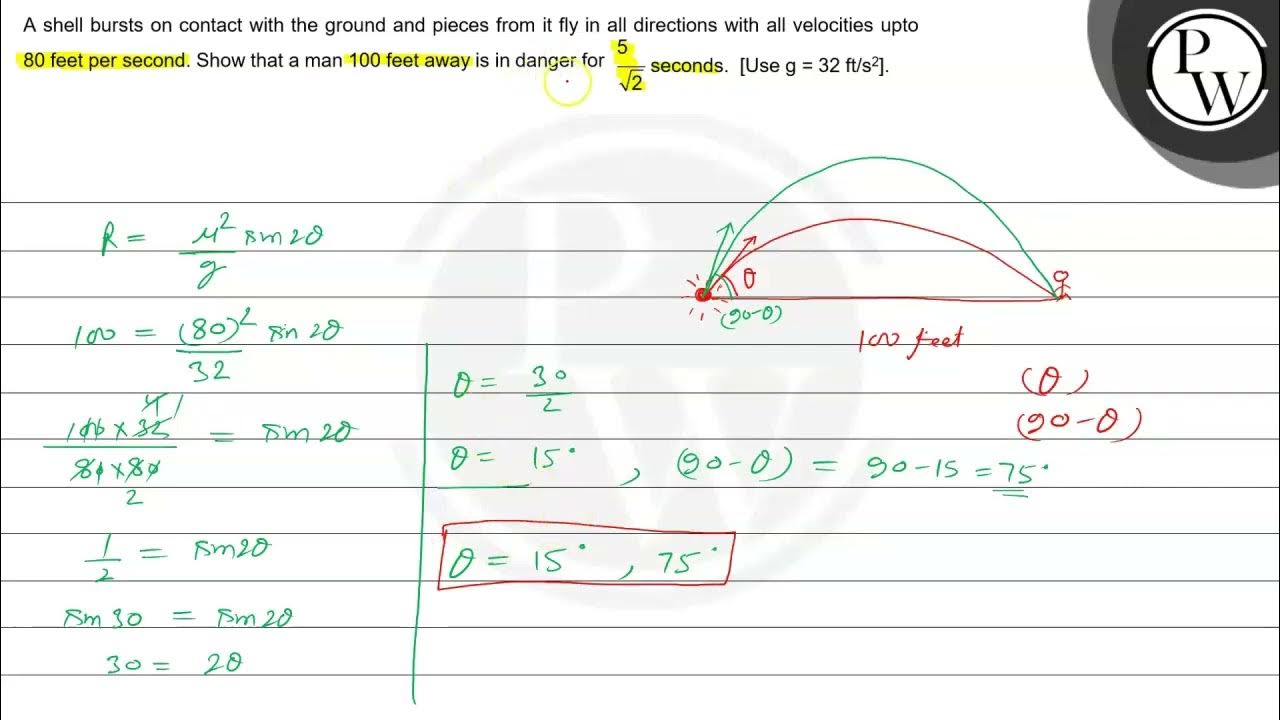 A shell bursts on contact with the ground and pieces from it fly in all directions with all velocities upto
80 feet per second. Show that a man 100 feet away is in danger for 5/√2 seconds. [Use g = 32 ft/s²].
PW
R = u² sin 2θ / g
100 = (80)² sin 2θ / 32
100 × 32 / 80 × 80 = sin 2θ
4 1
2
1/2 = sin 2θ
sin 30 = sin 2θ
30 = 2θ
θ
(90-θ)
100 feet
(θ)
(90-θ)
θ = 30/2
θ = 15° , (90-θ) = 90-15 = 75°
θ = 15° , 75°